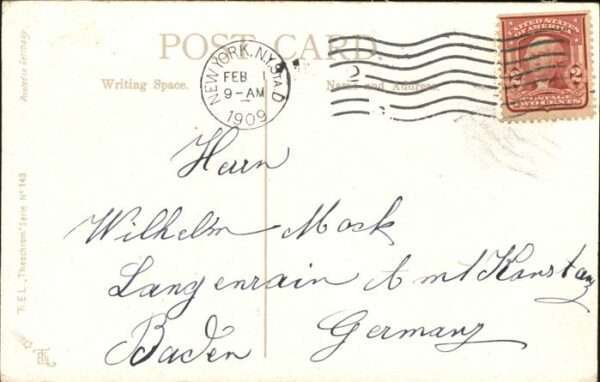 POST CARD
Writing Space.
Name and Address.
NEW YORK, N.Y. STA. O
FEB 1
9-AM
1909
2
UNITED STATES
OF AMERICA
2 2
TWO CENTS
Herrn
Wilhelm Mock
Langenrain Amt Konstanz
Baden Germany
T.E.L. „Theochrom" Serie No 143